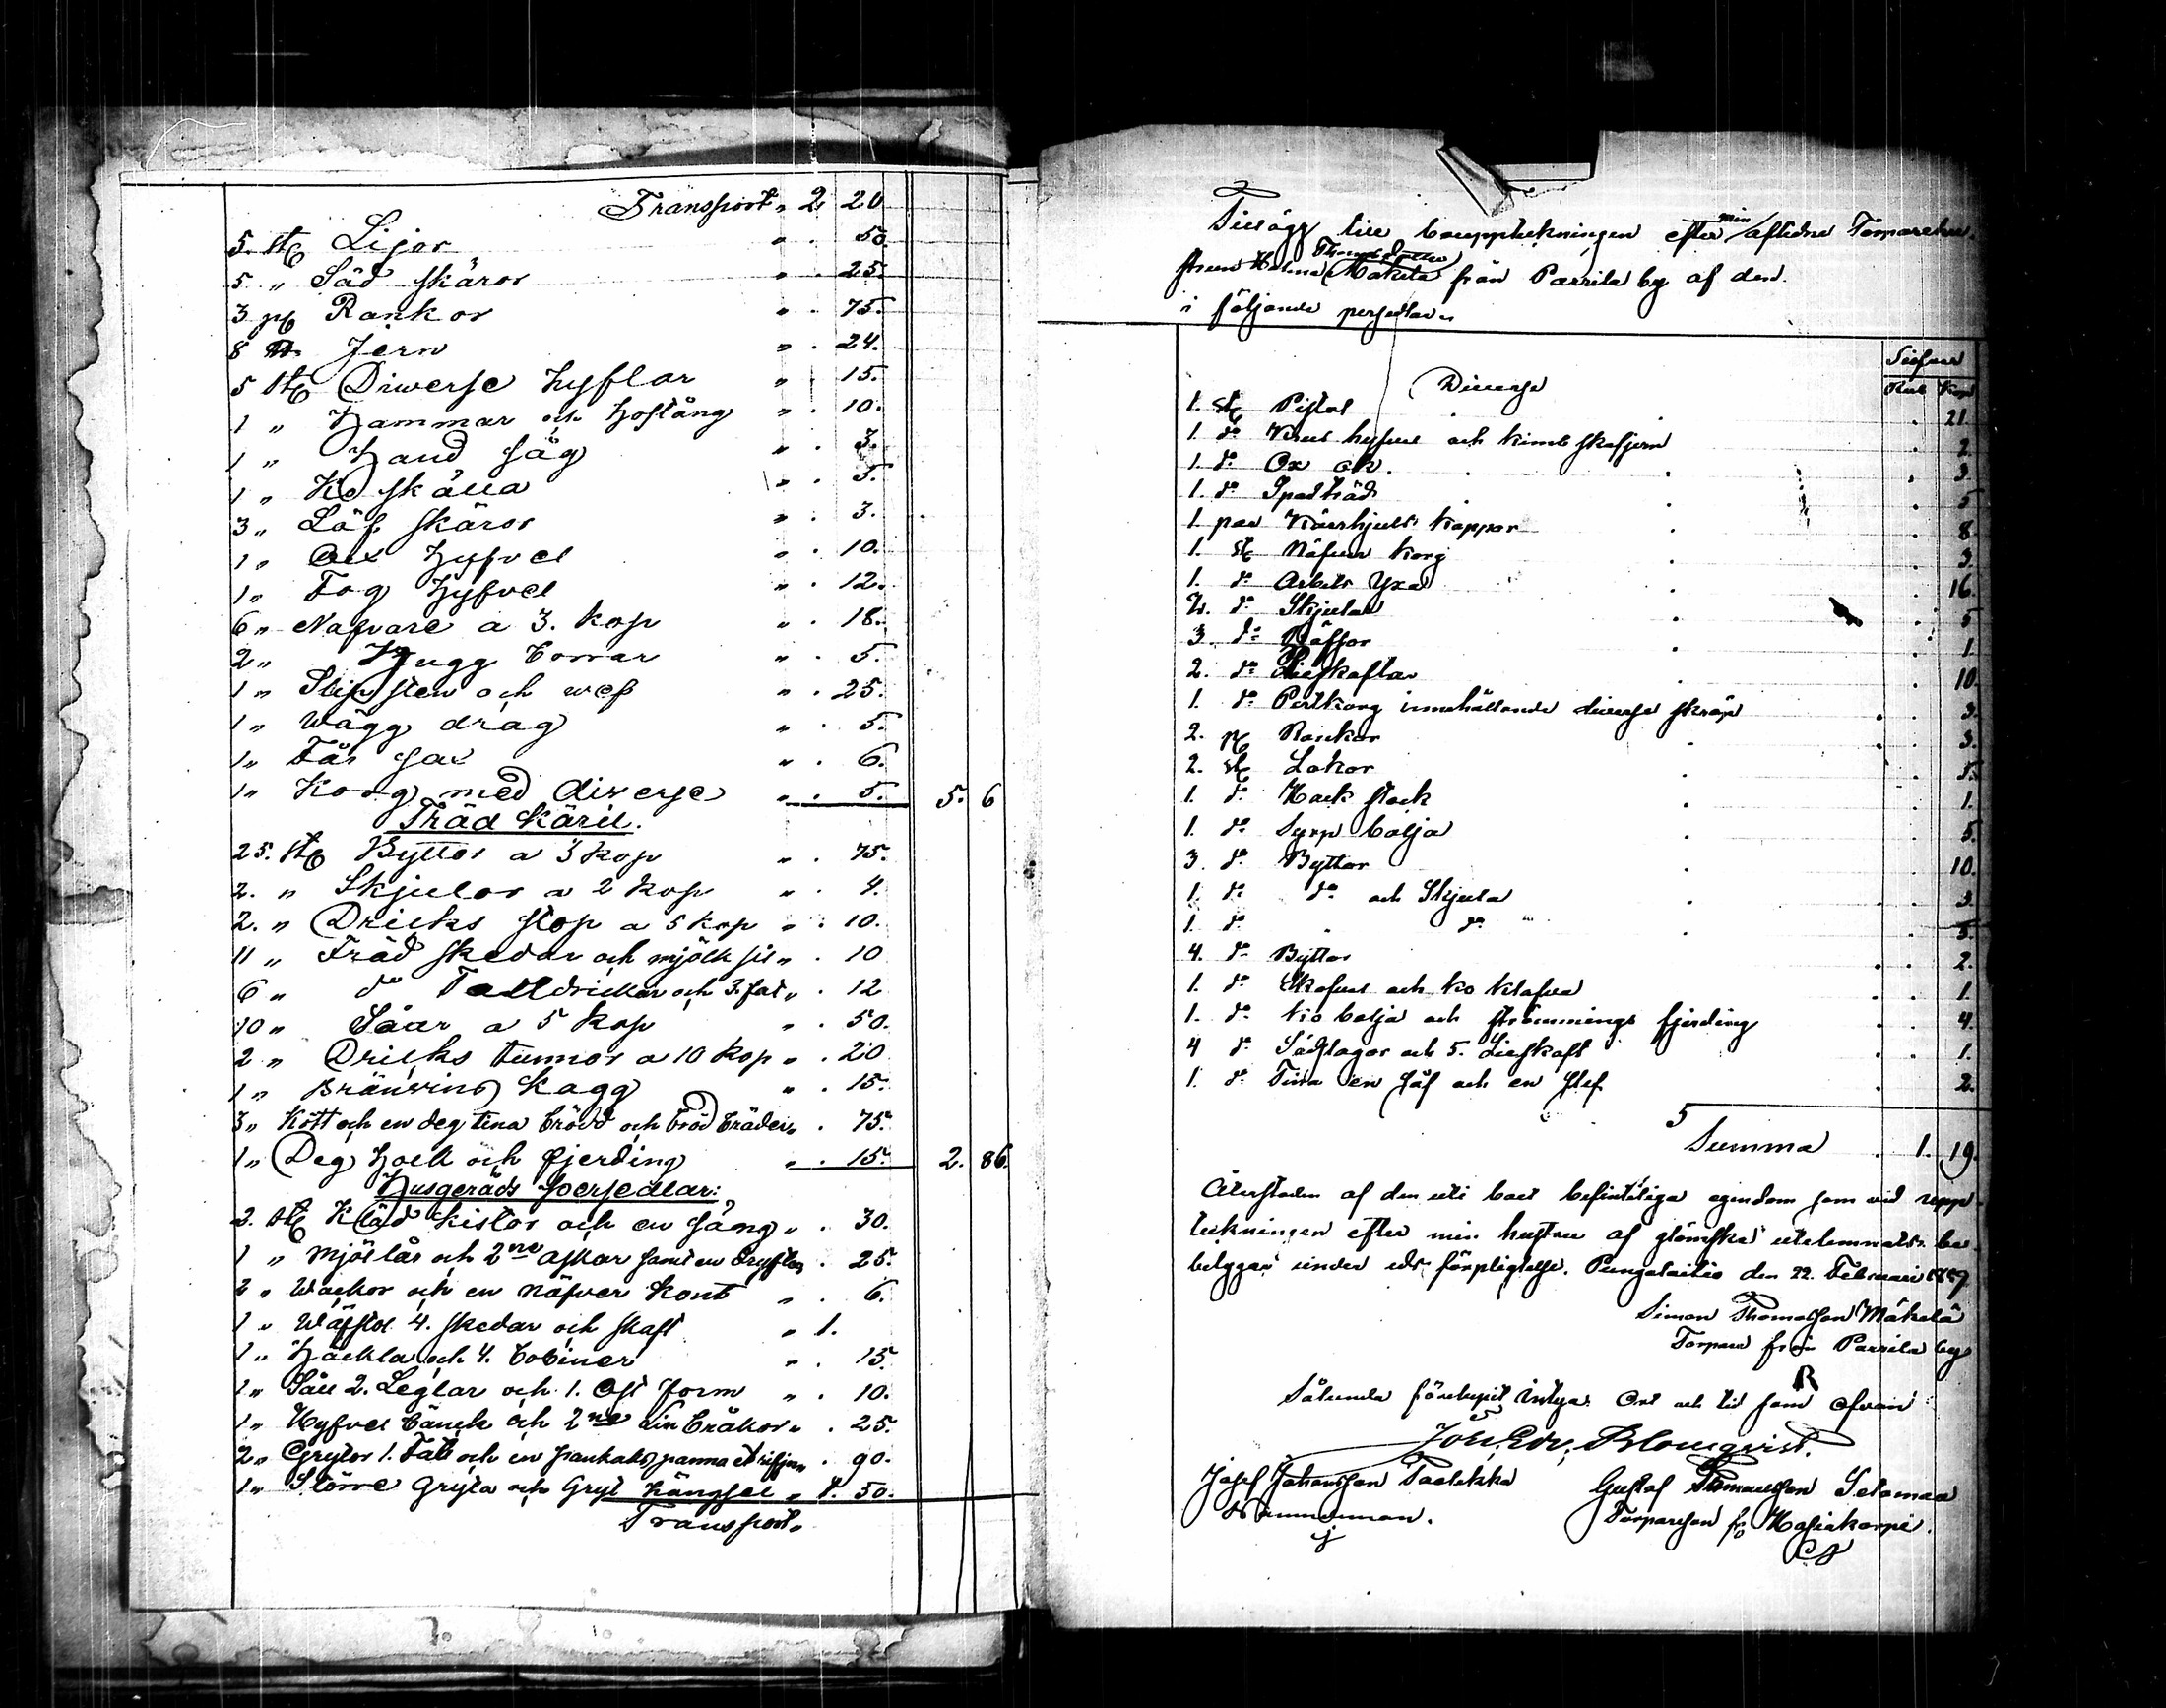 Transport „ 2 20
5. st Lijor „ . 50.
5 „ Säd skäror „ . 25.
3 p Rankor „ . 75.
8 ℔ Jern „ . 24.
5 st Diwerse Hyflar „ . 15.
1 „ Hammar och Hoftång „ . 10.
1 „ Hand såg „ . 3.
1 „ Ko skälla „ . 5.
3 „ Löf skäror „ . 3.
1 „ Hyfvel „ . 10.
1 „ Fog Hyfvel „ . 12.
6 „ Nafvare a 3. kop „ . 18.
2 „ Hugg borrar „ . 5.
1 „ Slip sten och wef „ . 25.
1 „ Wägg drag „ . 5.
1 „ Får sax „ . 6.
1 „ Korg med diverse „ . 5. 5. 6
Träd Käril.
25. st Byttor a 3 kop „ . 75.
2. „ Skjulor a 2 kop „ . 4.
2. „ Dricks stop a 5 kop „ . 10.
11 „ Träd skedar och mjölk sil „ . 10
6 „ do Talldrickar och 3. fat „ . 12
10 „ Såar a 5 kop „ . 50.
2 „ Dricks tunnor a 10 kop „ . 20
1 „ Bränvins Kagg „ . 15.
3 „ Kött och en deg tina bröd och bröd bräden „ . 75.
1 „ Deg Hoch och fjerding „ . 15. 2. 86.
Husgeråds persedlar:
2. st Kläd kistor och en säng „ . 30.
1 „ Mjöllår och 2ne askar samt en . 25.
2 „ Wackor och en Näfver Kont „ . 6.
1 „ Wäfstol 4. skedar och skaft „ 1.
1 „ Häckla och 4. bobiner „ . 15.
1 „ Såll 2. Leglar och 1. Ost form „ . 10.
1 „ Hyfvel bänck och 2ne Lin bråkor „ . 25.
2 „ Grytor 1. Fat och en pankaks panna . 90.
1 „ Större Gryta och Gryt hängsel „ 1. 50.
Transport „
Tillägg till bouppteckningen efter min aflidne Torpareh
strun Helena Mäkelä från Parrila by af den
i följande persedlar
Silfver
Rub Kop
Diverse
1. st Pistol . 21.
1 do hyfvel och kimb skafjern . 2.
1. do Ox ok . 3
1. do Spadträd . 5
1. par Kärrhjuls kappor . 8.
1. st Näfver korg . 3.
1. do Arbets Yxa . 16.
2. do Skjulor . 5
3. do Räffsor . 1.
2. do Lieskaftar . 10.
1. do Pertkorg innehållande diverse skräp . 3.
2. p Rankor . 3.
2. st Lokor . 5.
1. do Hack stock . 1.
1. do Syrp balja . 5.
3. do Byttor . 10.
1. do do och Skjula . 3.
1. do „ do „ . 5.
4. do Byttor . 2.
1. do Skofvel och ko klafva . 1.
1. do Ko balja och strömmings fjerding . 4.
4 do och 5. Lieskaft . 1.
1. do Tina en såf och en . 2.
Summa . 1. 19.
Återstoden af den uti boet befintliga egendom som vid upp
teckningen efter min hustru af glömska utelemnats. be
betygar under eds förpligtelse. Pungalaitio den 22. Februari
Simon Thomasson Mäkelä
Torpare från Parrila by
Sålunda föreluppit intyga. Ort och tid som ofvan
Joh. Edv. Blomqvist.
Josef Johansson
Nämndeman.
Gustaf Thomasson Selamaa
Torpareson fr